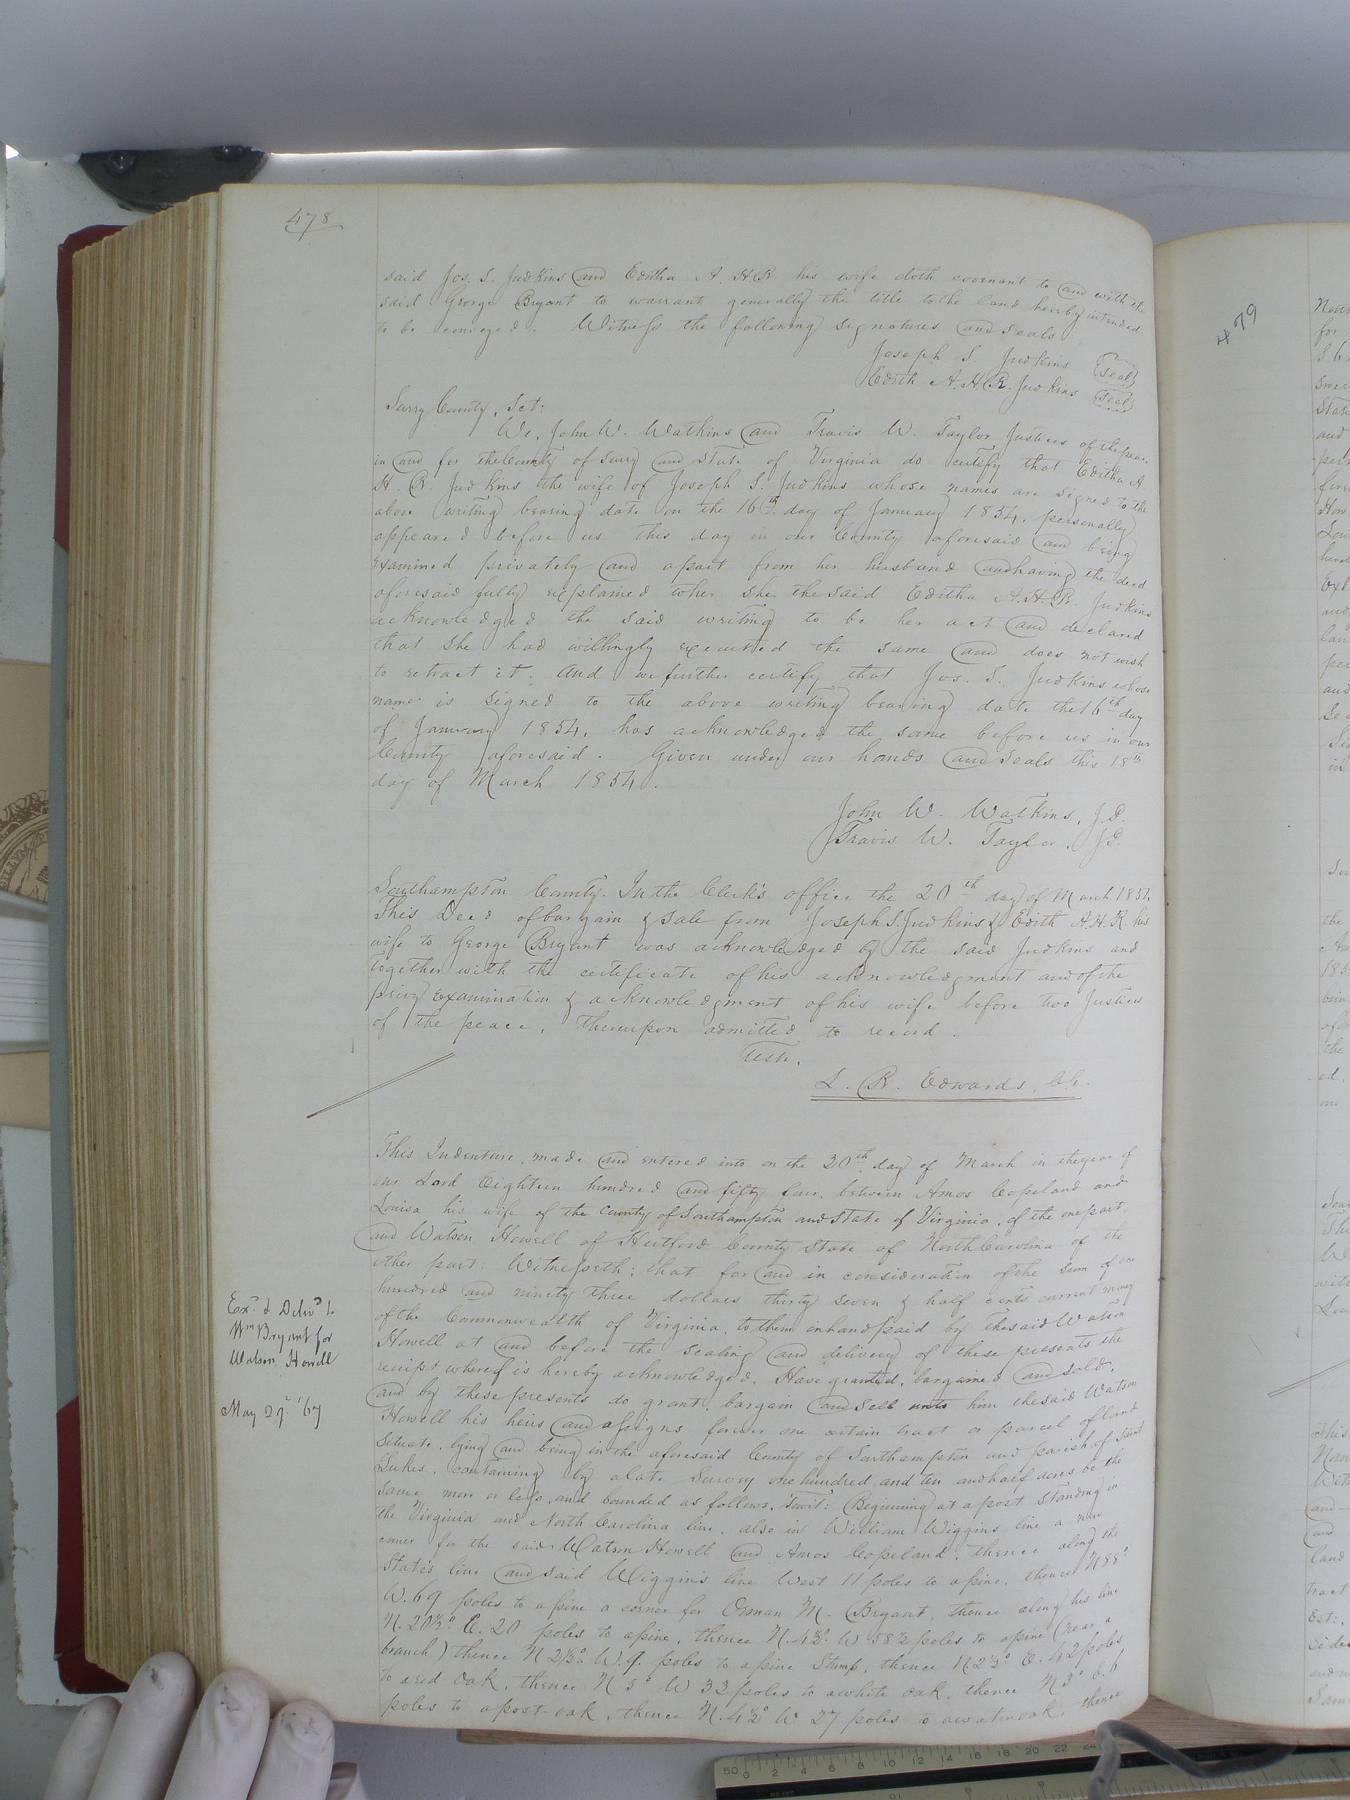 478
said Jos. S. Judkins and Editha A. H R his wife doth covenant to and with the
said George Bryant to warrant generally the title to the land hereby intended
to be conveyed. Witness the following signatures and seals
Joseph S. Judkins Seal
Edith A. H. R. Judkins Seal
Surry County, Sct:
We, John W. Watkins and Travis W. Taylor Justices of the peace
in and for the County of Surry and State of Virginia do certify that Editha A
H. R. Judkins the wife of Joseph S. Judkins whose names are signed to the
above writing bearing date on the 16th day of January 1854, personally
appeared before us this day in our County aforesaid and being
examined privately and apart from her husband and having the deed
aforesaid fully explained to her she the said Editha A. H. R. Judkins
acknowledged the said writing to be her act and declared
that she had willingly executed the same and does not wish
to retract it. And we further certify that Jos. S. Judkins whose
name is signed to the above writing bearing date the 16th day
of January 1854, has acknowledged the same before us in our
County aforesaid. Given under our hands and seals this 18th
day of March 1854.
John W. Watkins, J.P.
Travis W. Taylor, J.P.
Southampton County. In the Clerk's office the 20th day of March 1854
This Deed of bargain & sale from Joseph S. Judkins & Edith A. H. R. his
wife to George Bryant was acknowledged by the said Judkins and
together with the certificate of his acknowledgment and of the
privy examination & acknowledgment of his wife before two Justices
of the peace, thereupon admitted to record.
Teste.
L. R. Edwards, Clk.
This Indenture, made and entered into on the 20th day of March in the year of
our Lord Eighteen hundred and fifty four, between Amos Copeland and
Louisa his wife of the County of Southampton and State of Virginia, of the one part,
and Watson Howell of Hertford County State of North Carolina of the
other part: Witnesseth; that for and in consideration of the sum of one
hundred and ninety three dollars thirty seven & half cents current money
of the Commonwealth of Virginia, to them in hand paid by the said Watson
Howell at and before the sealing and delivery of these presents the
receipt whereof is hereby acknowledged, Have granted, bargained and sold,
and by these presents do grant, bargain and sell unto him the said Watson
Howell his heirs and assigns forever one certain tract or parcel of land
Situate, lying and being in the aforesaid County of Southampton and parish of Saint
Lukes, containing by a late Survey one hundred and ten and half acres be the
same more or less, and bounded as follows, Towit: Beginning at a post standing in
the Virginia and North Carolina line, also in William Wiggins line a new
corner for the said Watson Howell and Amos Copeland, thence along the
States line and said Wiggin's line West 11 poles to a pine, thence N 88°
W. 69 poles to a pine a corner for Osman M. Bryant, thence along his line
N. 20½° E. 20 poles to a pine, thence N. 4½° W 58½ poles to a pine (near a
branch) thence N 2½° W. 9. poles to a pine Stump, thence N 2½° E. 42 poles
to a red oak, thence N 5° W 32 poles to a white oak, thence N 3° E. 6
poles to a post-oak, thence N. 4½° W 27 poles to a water oak, thence
Exd. & Delivd. to
Wm Bryant for
Watson Howell
May 29. '67
479